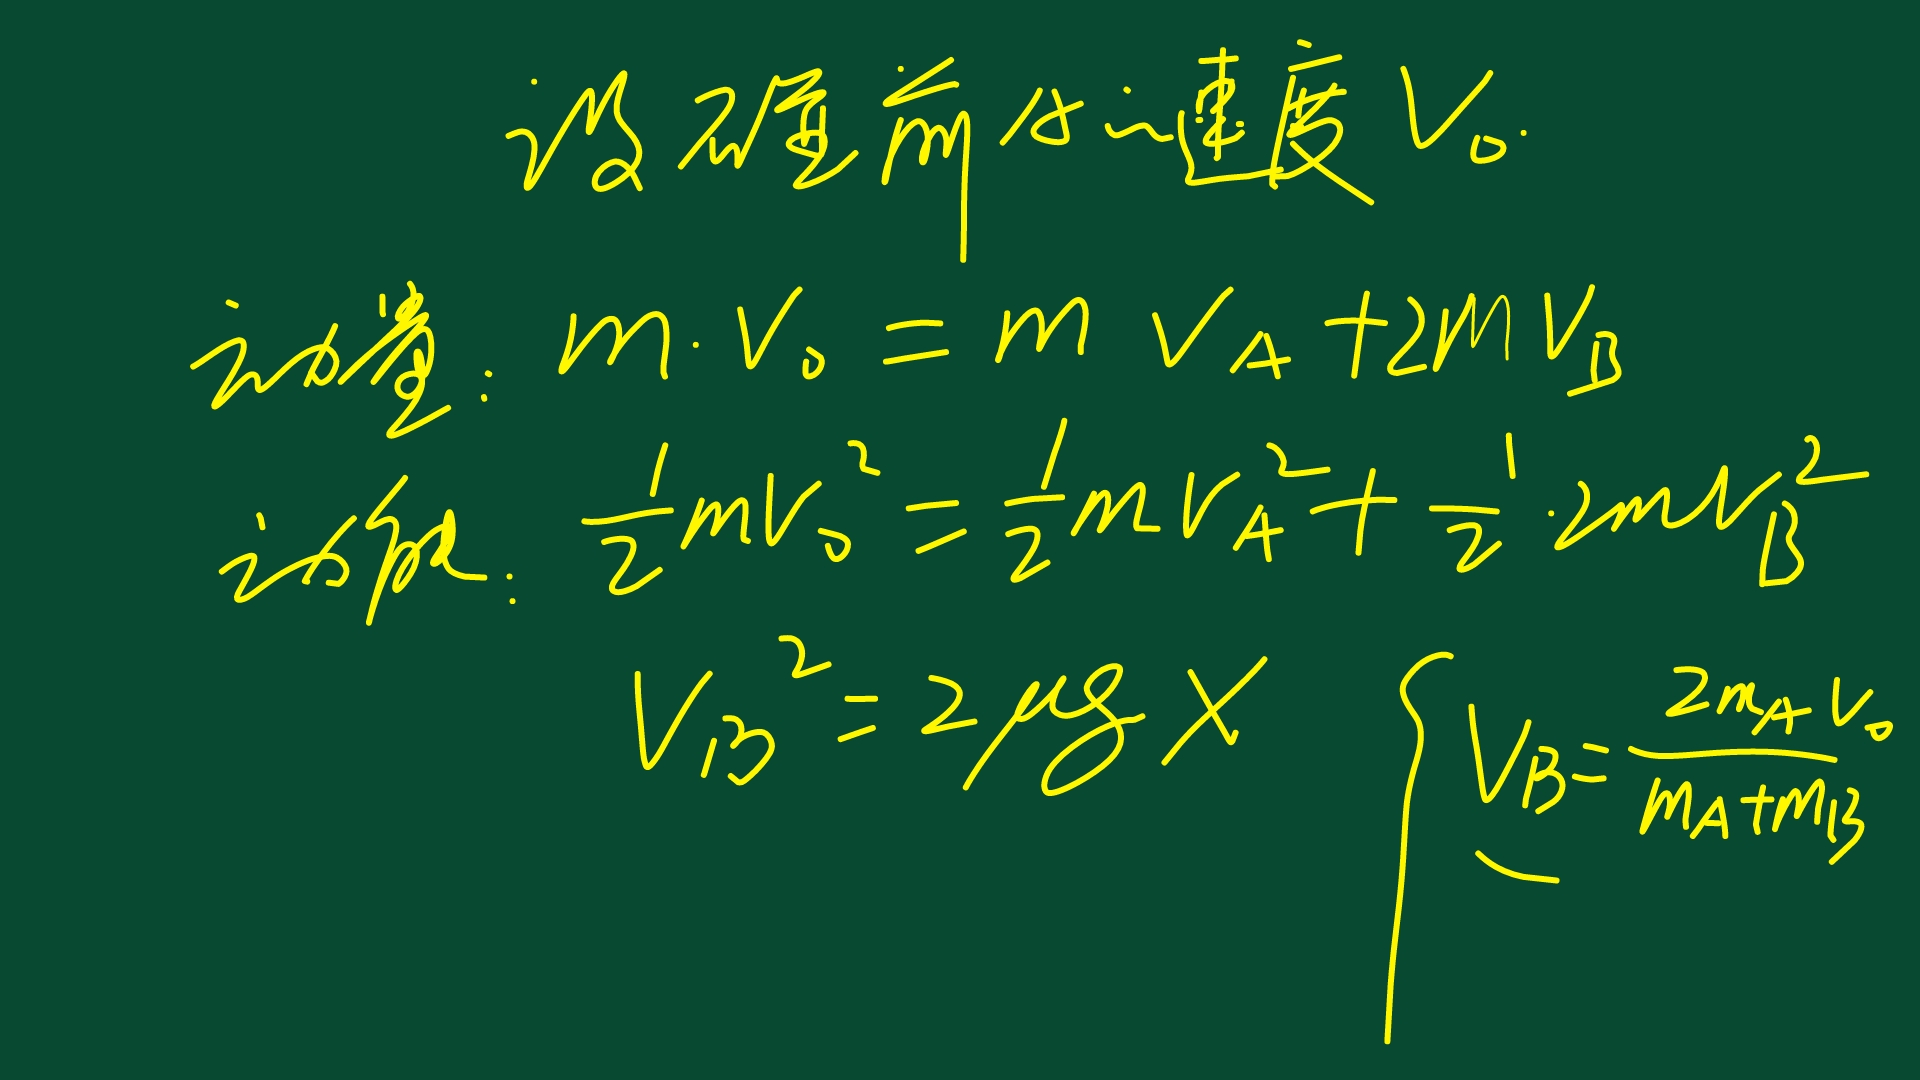 设碰前A的速度V₀.
动量: m·V₀ = m V_A + 2M V_B
动能: ½mV₀² = ½mV_A² + ½·2mV_B²
V_B² = 2μg X
{ V_B = 2m_A V₀ / (m_A+m_B)